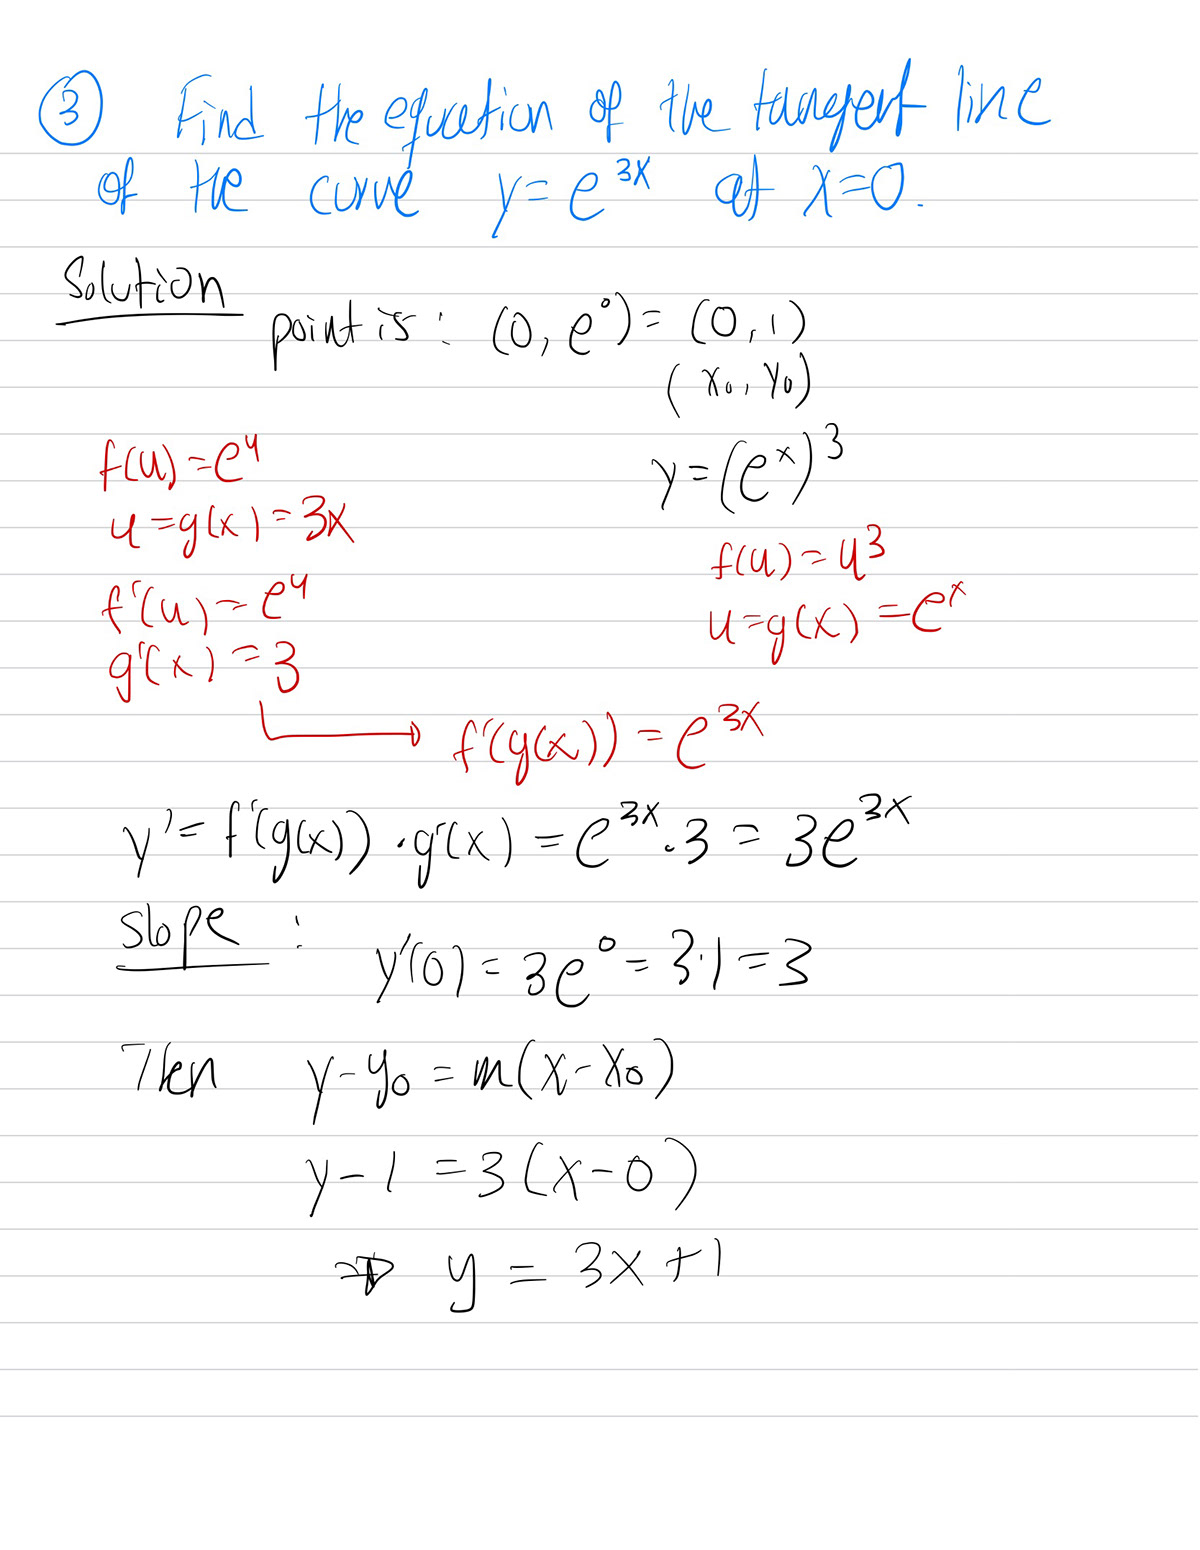 ③ Find the equation of the tangent line
of the curve y = e^{3x} at x=0.
Solution
point is : (0, e^0) = (0, 1)
(x_0, y_0)
f(u) = e^u
y = (e^x)^3
u = g(x) = 3x
f(u) = u^3
f'(u) = e^u
u = g(x) = e^x
g'(x) = 3
f'(g(x)) = e^{3x}
y' = f'(g(x)) · g'(x) = e^{3x} · 3 = 3e^{3x}
Slope :
y'(0) = 3e^0 = 3·1 = 3
Then y - y_0 = m(x - x_0)
y - 1 = 3(x - 0)
⇒ y = 3x + 1